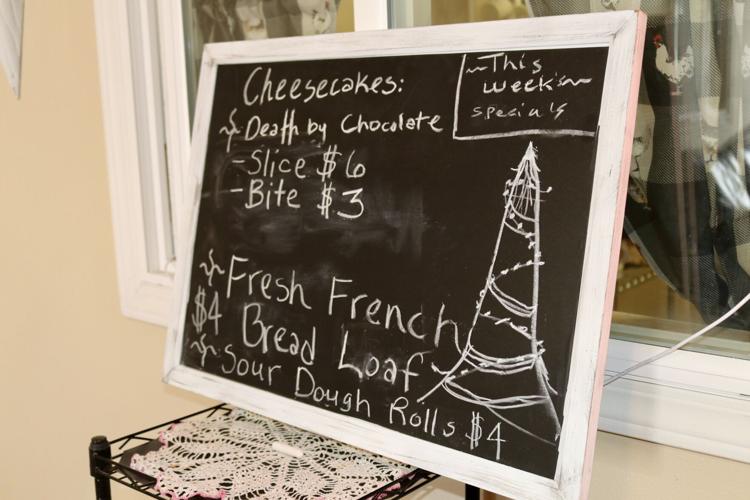 ~This
week's~
specials
Cheesecakes:
~Death by Chocolate
-Slice $6
-Bite $3
~Fresh French
$4 Bread Loaf~
~Sour Dough Rolls $4